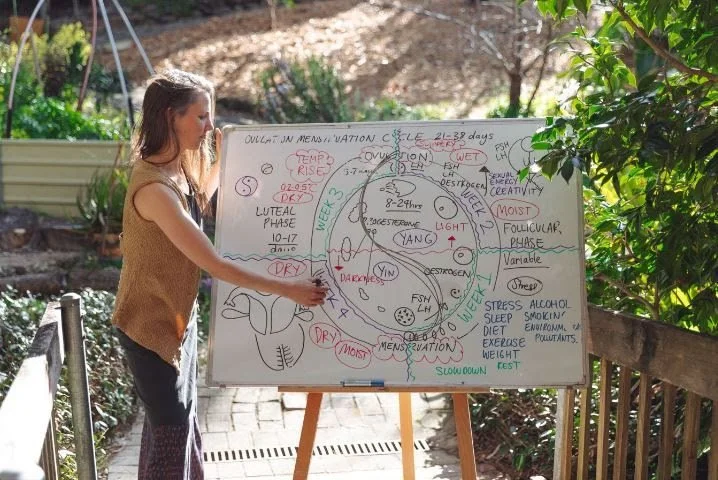 OVULATION MENSTRUATION CYCLE 21-38 days
TEMP
RISE
DRY
LUTEAL
PHASE
10-17
days
DRY
WEEK 3
3-7
OVULATION
LH
FSH
LH
OESTROGEN
SLIPPERY
WET
8-24hrs
PROGESTERONE
YANG
LIGHT
WEEK 2
YIN
DARKNESS
OESTROGEN
FSH
LH
WEEK 1
4
DRY
MOIST
MENSTRUATION
SLOWDOWN REST
FSH
LH
SEXUAL
ENERGY
CREATIVITY
MOIST
FOLLICULAR
PHASE
Variable
Stress
STRESS ALCOHOL
SLEEP SMOKIN'
DIET ENVIRONM
EXERCISE POLLUTANTS.
WEIGHT